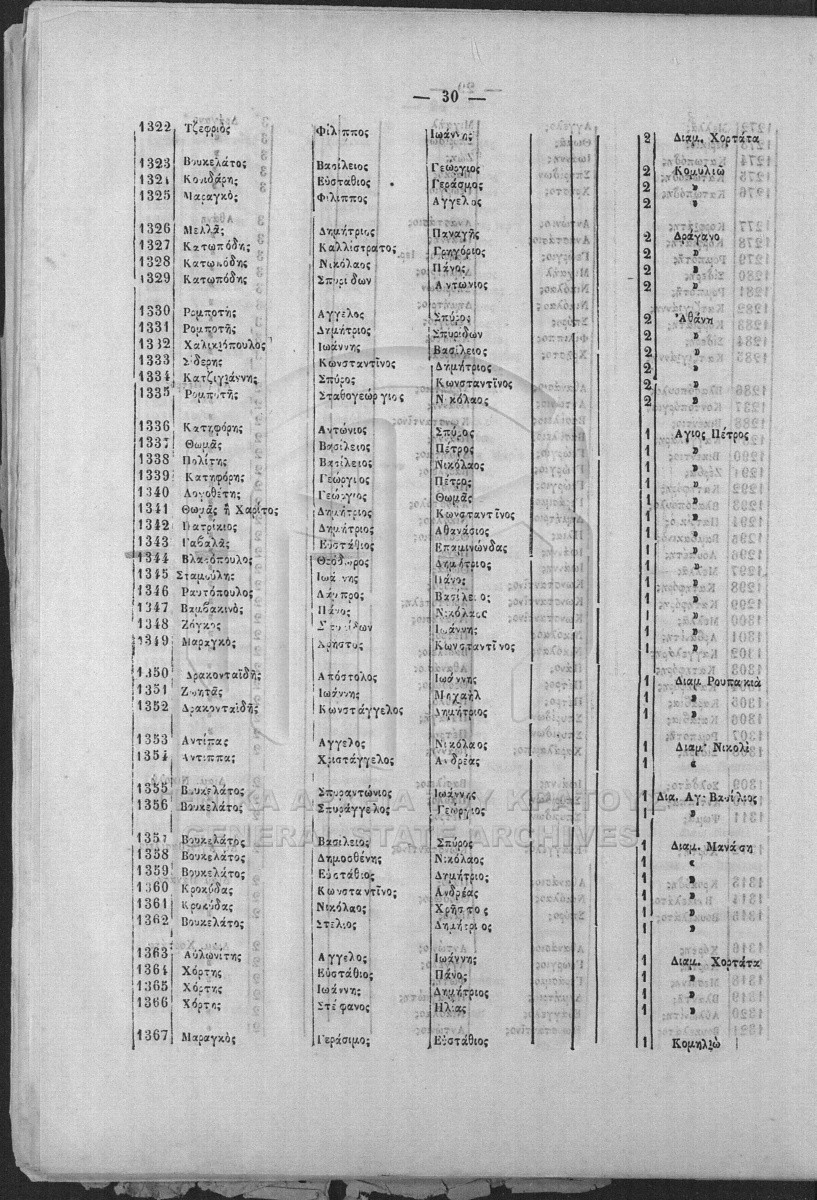 — 30 —
1322 Τζεφριὸς Φίλιππος Ἰωάννης 2 Διαμ. Χορτάτα
1323 Βουκελάτος Βασίλειος Γεώργιος 2 Κομυλιώ
1324 Κουιδάρης Εὐστάθιος Γεράσμος 2 »
1325 Μαραγκὸς Φίλιππος Αγγελος 2 »
1326 Μελλᾶς Δημήτριος Παναγῆς 2 Δράγανο
1327 Κατωπόδης Καλλίστρατος Γρηγόριος 2 »
1328 Κατωπόδης Νικόλαος Πάνος 2 »
1329 Κατωπόδης Σπυρίδων Αντώνιος 2 »
1330 Ρομποτῆς Αγγελος Σπύρος 2 Ἀθάνη
1331 Ρομποτῆς Δημήτριος Σπυρίδων 2 »
1332 Χαλικιόπουλος Ἰωάννης Βασίλειος 2 »
1333 Σίδερης Κωνσταντῖνος Δημήτριος 2 »
1334 Κατζιγιάννης Σπῦρος Κωνσταντῖνος 2 »
1335 Ρομποτῆς Σταθογεώργιος Νικόλαος 2 »
1336 Κατηφόρης Αντώνιος Σπῦρος 1 Αγιος Πέτρος
1337 Θωμᾶς Βασίλειος Πέτρος 1 »
1338 Πολίτης Βασίλειος Νικόλαος 1 »
1339 Κατηφόρης Γεώργιος Πέτρος 1 »
1340 Λογοθέτης Γεώργιος Θωμᾶς 1 »
1341 Θωμᾶς ἢ Χαρίτος Δημήτριος Κωνσταντῖνος 1 »
1342 Πατρίκιος Δημήτριος Αθανάσιος 1 »
1343 Γαβαλᾶς Εὐστάθιος Επαμινώνδας 1 »
1344 Βλασόπουλος Θεόδωρος Δημήτριος 1 »
1345 Σταμούλης Ἰωάννης Πάνος 1 »
1346 Ραυτόπουλος Λάμπρος Βασίλειος 1 »
1347 Βαμβακινὸς Πάνος Νικόλαος 1 »
1348 Ζόγκος Σπυρίδων Ἰωάννης 1 »
1349 Μαραγκὸς Χρῆστος Κωνσταντῖνος 1 »
1350 Δρακονταϊδῆς Απόστολος Ἰωάννης 1 Διαμ Ρουπακιὰ
1351 Ζωητᾶς Ἰωάννης Μιχαὴλ 1 »
1352 Δρακονταϊδῆς Κωνστάγγελος Δημήτριος 1 »
1353 Αντίπας Αγγελος Νικόλαος 1 Διαμ· Νικολὶ
1354 Αντίππας Χριστάγγελος Ανδρέας 1 «
1355 Βουκελάτος Σπυραντώνιος Ἰωάννης 1 Δια. Αγ· Βασίλιος
1356 Βουκελάτος Σπυράγγελος Γεώργιος 1 »
ΓΕΝΙΚΑ ΑΡΧΕΙΑ ΤΟΥ ΚΡΑΤΟΥΣ
GENERAL STATE ARCHIVES
1357 Βουκελάτος Βασίλειος Σπῦρος 1 Διαμ. Μανάση
1358 Βουκελάτος Δημοσθένης Νικόλαος 1 «
1359 Βουκελάτος Εὐστάθιος Δημήτριος 1 »
1360 Κροκύδας Κωνσταντῖνος Ανδρέας 1 »
1361 Κροκύδας Νικόλαος Χρῆστος 1 »
1362 Βουκελάτος Στέλιος Δημήτριος 1 »
1363 Αὐλωνίτης Αγγελος Ἰωάννης 1 Διαμ. Χορτάτα
1364 Χόρτης Εὐστάθιος Πάνος 1 »
1365 Χόρτης Ἰωάννης Δημήτριος 1 »
1366 Χόρτης Στέφανος Ηλίας 1 »
1367 Μαραγκὸς Γεράσιμος Εὐστάθιος 1 Κομηλιὼ